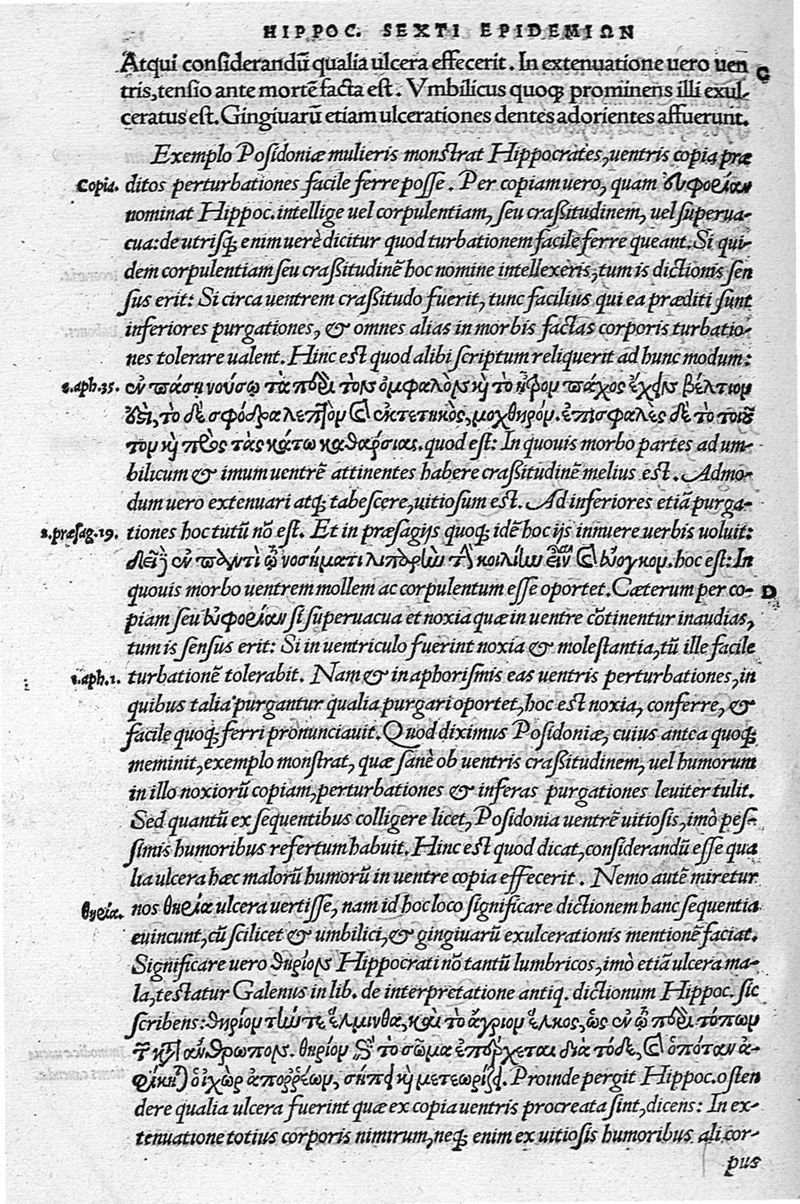 HIPPOC. SEXTI EPIDEMIΩN
Atqui considerandũ qualia ulcera effecerit. In extenuatione uero uen C
tris, tensio ante mortẽ facta est. Vmbilicus quoq; prominens illi exul
ceratus est. Gingiuarũ etiam ulcerationes dentes adorientes affuerunt.
Exemplo Posidoniæ mulieris monstrat Hippocrates, uentris copia præ
Copia. ditos perturbationes facile ferre posse. Per copiam uero, quam
nominat Hippoc. intellige uel corpulentiam, seu craßitudinem, uel superua-
cua: de utrisq; enim uerè dicitur quod turbationem facile ferre queant. Si qui-
dem corpulentiam seu craßitudinẽ hoc nomine intellexeris, tum is dictionis sen
sus erit: Si circa uentrem craßitudo fuerit, tunc facilius qui ea præditi sunt
inferiores purgationes, & omnes alias in morbis factas corporis turbatio-
nes tolerare ualent. Hinc est quod alibi scriptum reliquerit ad hunc modum:
2.aph.35. ἐν πάσῃ νούσῳ τὰ περὶ τοῖς ὀμφαλοῖς κỳ τὸ ἦτρον πάχος ἔχειν βέλτιον
δεῖ, τὸ δὲ σφόδρα λεπτὸν καὶ ἐκτετηκὸς, μοχθηρόν. ἐπισφαλὲς δὲ τὸ τοιοῦ
τον κỳ πρὸς τὰς κάτω καθάρσιας. quod est: In quouis morbo partes ad um-
bilicum & imum uentrẽ attinentes habere craßitudinẽ melius est. Admo-
dum uero extenuari atq; tabescere, uitiosum est. Ad inferiores etiã purga-
2.præsag.19. tiones hoc tutũ nõ est. Et in præsagijs quoq; idẽ hoc ijs innuere uerbis uoluit:
ἐν παντὶ τῷ νοσήματι λαπαρὴν τὴν κοιλίην εἶναι καὶ εὔογκον. hoc est: In
quouis morbo uentrem mollem ac corpulentum esse oportet. Cæterum per co- D
piam seu εὐφορίαν si superuacua et noxia quæ in uentre cõtinentur inaudias,
tum is sensus erit: Si in uentriculo fuerint noxia & molestantia, tũ ille facile
1.aph.2. turbationẽ tolerabit. Nam & in aphorismis eas uentris perturbationes, in
quibus talia purgantur qualia purgari oportet, hoc est noxia, conferre, &
facile quoq; ferri pronunciauit. Quod diximus Posidoniæ, cuius antea quoq;
meminit, exemplo monstrat, quæ sanè ob uentris craßitudinem, uel humorum
in illo noxiorũ copiam, perturbationes & inferas purgationes leuiter tulit.
Sed quantũ ex sequentibus colligere licet, Posidonia uentrẽ uitiosis, imò pes-
simis humoribus refertum habuit. Hinc est quod dicat, considerandũ esse qua
lia ulcera hæc malorũ humorũ in uentre copia effecerit. Nemo autẽ miretur
θηρία. nos θηρία ulcera uertisse, nam id hoc loco significare dictionem hanc sequentia
euincunt, cũ scilicet & umbilici, & gingiuarũ exulcerationis mentionẽ faciat.
Significare uero θηρίοις Hippocrati nõ tantũ lumbricos, imò etiã ulcera ma-
la, testatur Galenus in lib. de interpretatione antiq. dictionum Hippoc. sic
scribens: θηρίον τήν τε ἕλμινθα, καὶ τὸ ἄγριον ἕλκος, ὡς ἐν τῷ περὶ τόπων
τῶν κατ᾽ ἀνθρώποις. θηρίον τὸ σῶμα ἐπέρχεται διὰ τόδε, καὶ ὁπόταν ἀ-
ὁ ἰχὼρ ἀποῤῥέων, σήπει κỳ μετεωρίζει. Proinde pergit Hippoc. osten
dere qualia ulcera fuerint quæ ex copia uentris procreata sint, dicens: In ex-
tenuatione totius corporis nimirum, neq; enim ex uitiosis humoribus ali cor-
pus